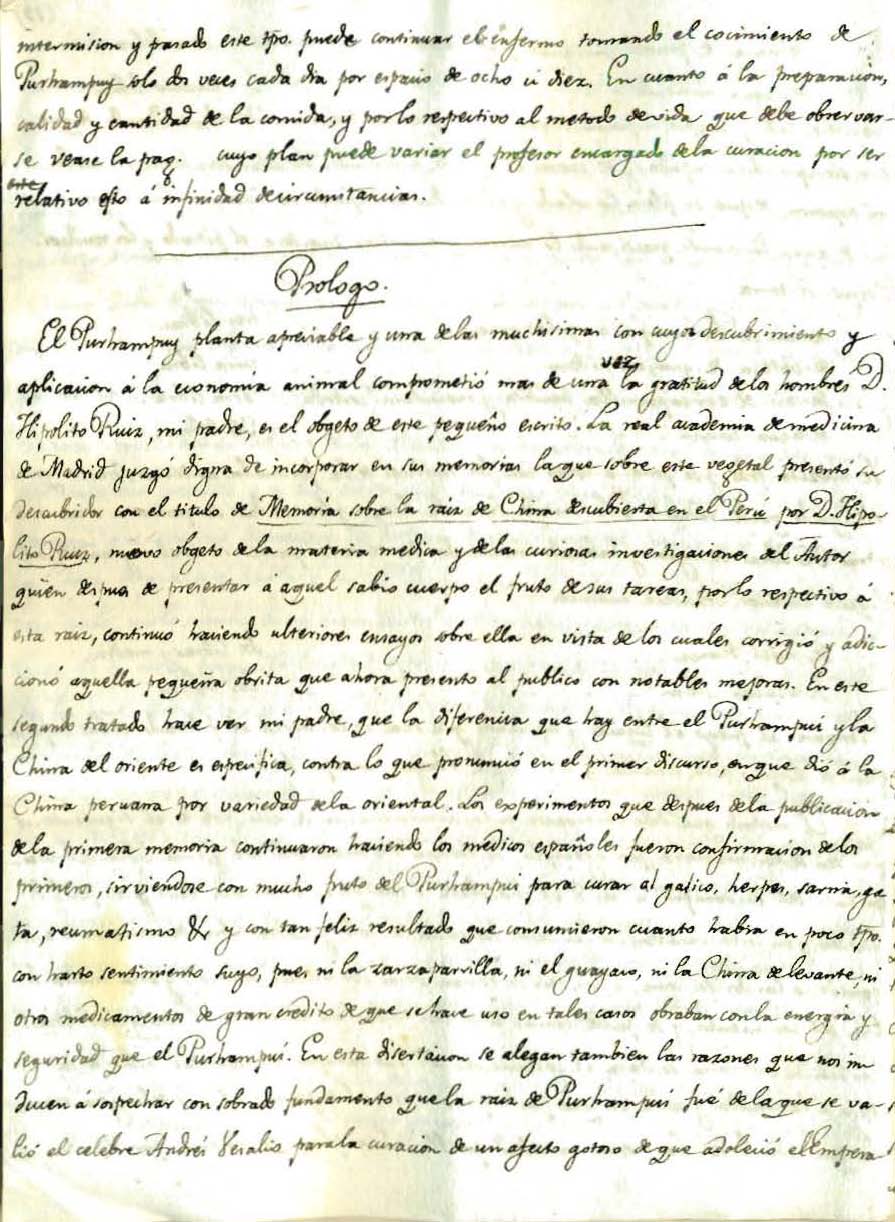 intermision y pasado este tpo. puede continuar el enfermo tomando el cocimiento de
Purhampuy solo dos veces cada dia por espacio de ocho ú diez. En cuanto á la preparacion,
calidad y cantidad de la comida, y por lo respectivo al metodo de vida que debe observar-
se vease la pag. cuyo plan puede variar el profesor encargado de la curacion por ser
relativo esto á infinidad de circunstancias.
Prologo.
El Purhampuy planta apreciable y una de las muchisimas con cuyo descubrimiento y
aplicacion á la economía animal comprometió mas de una vez la gratitud de los hombres D.
Hipolito Ruiz, mi padre, es el obgeto de este pequeño escrito. La real academia de medicina
de Madrid juzgó digna de incorporar en sus memorias la que sobre este vegetal presentó su
descubridor con el titulo de Memoria sobre la raiz de China descubierta en el Perú por D. Hipo-
lito Ruiz, nuevo obgeto de la materia medica y de las curiosas investigaciones del Autor
quien despues de presentar á aquel sabio cuerpo el fruto de sus tareas, por lo respectivo á
esta raiz, continuó haciendo ulteriores ensayos sobre ella en vista de los cuales corrigió y adic-
cionó aquella pequeña obrita que ahora presento al publico con notables mejoras. En este
segundo tratado hace ver mi padre, que la diferencia que hay entre el Purhampui y la
China del oriente es especifica, contra lo que pronunció en el primer discurso, en que dió á la
China peruana por variedad de la oriental. Los experimentos que despues de la publicacion
de la primera memoria continuaron haciendo los medicos españoles fueron confirmacion de los
primeros, sirviendose con mucho fruto del Purhampui para curar al galico, herpes, sarna, go
ta, reumatismo &c y con tan feliz resultado que consumieron cuanto habia en poco tpo.
con harto sentimiento suyo, pues ni la zarzaparrilla, ni el guayaco, ni la China de levante, ni
otros medicamentos de gran credito de que se hace uso en tales casos obraban con la energia y
seguridad que el Purhampuí. En esta disertacion se alegan tambien las razones que nos in
ducen á sospechar con sobrado fundamento que la raiz de Purhampuí fué de la que se va-
lió el celebre Andrés Vesalio para la curacion de un afecto gotoso de que adoleció el Empera